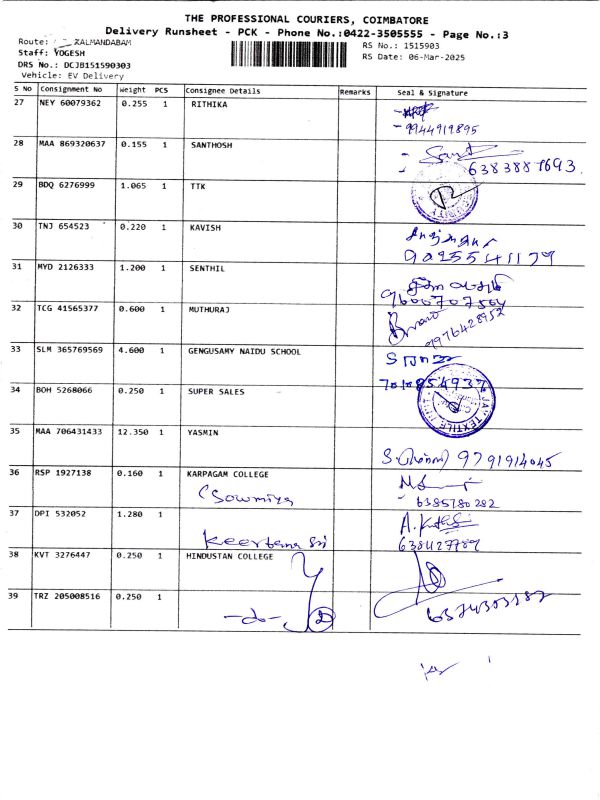 THE PROFESSIONAL COURIERS, COIMBATORE
Delivery Runsheet - PCK - Phone No.:0422-3505555 - Page No.:3
Route: KALMANDABAM
RS No.: 1515903
Staff: YOGESH
RS Date: 06-Mar-2025
DRS No.: DCJB151590303
Vehicle: EV Delivery
S No Consignment No Weight PCS Consignee Details Remarks Seal & Signature
27 NEY 60079362 0.255 1 RITHIKA
- 9944919895
28 MAA 869320637 0.155 1 SANTHOSH
29 BDQ 6276999 1.065 1 TTK
30 TNJ 654523 0.220 1 KAVISH
31 MYD 2126333 1.200 1 SENTHIL
9600707504
32 TCG 41565377 0.600 1 MUTHURAJ
9976428952
33 SLM 365769569 4.600 1 GENGUSAMY NAIDU SCHOOL
34 BOH 5268066 0.250 1 SUPER SALES
TEXTILE
35 MAA 706431433 12.350 1 YASMIN
9791914045
36 RSP 1927138 0.160 1 KARPAGAM COLLEGE
Sowmiya
- 6385780282
37 DPI 532052 1.280 1
Keertana Sri
38 KVT 3276447 0.250 1 HINDUSTAN COLLEGE
39 TRZ 205008516 0.250 1
-do- 2